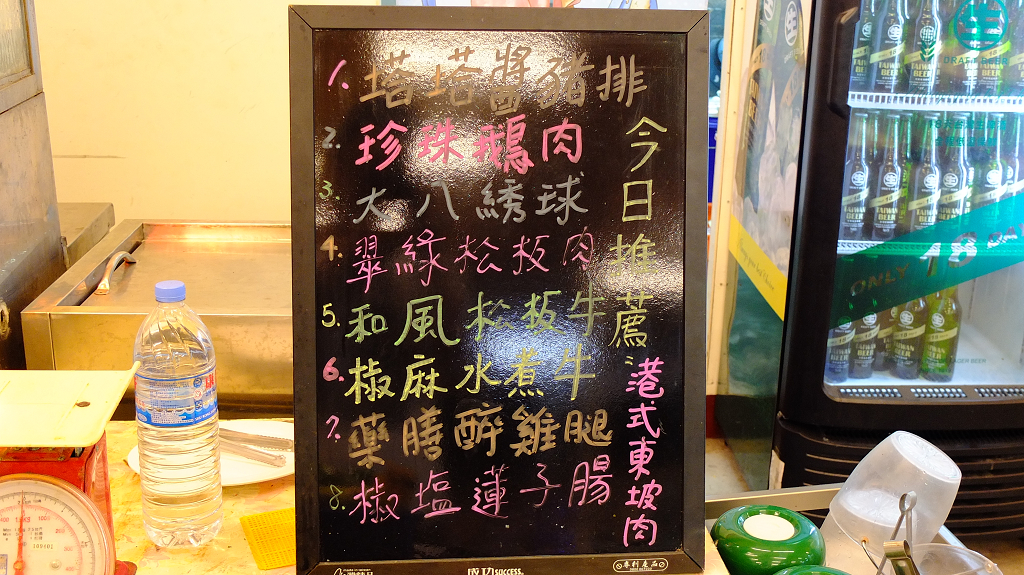 今日推薦
1. 塔塔醬豬排
2. 珍珠鵝肉
3. 大八繡球
4. 翠綠松板肉
5. 和風松板牛
6. 椒麻水煮牛
7. 藥膳醉雞腿
8. 椒塩蓮子腸
港式東坡肉
成功 SUCCESS
專利產品
生
DRAFT BEER
ONLY 18 DAYS
TAIWAN BEER